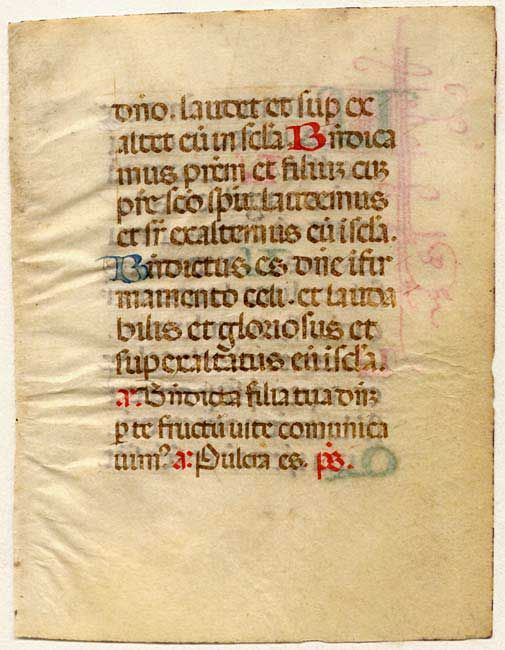 dn̄o. laudet et sup ex
altet eū in sc̄la. Bn̄dica
mus p̄rem et filiuz cuz
pfe sc̄o sp̄u laudemus
et sr̄ exaltemus eū i scla.
Bn̄dictus es dn̄e i fir
mamento celi. et lauda
bilis et gloriosus et
sup exaltatus eū i scla.
a: Bn̄dicta filia tua dn̄z
ꝑ te fructū uite comunica
uimꝰ a: Pulcra es. p̄s.